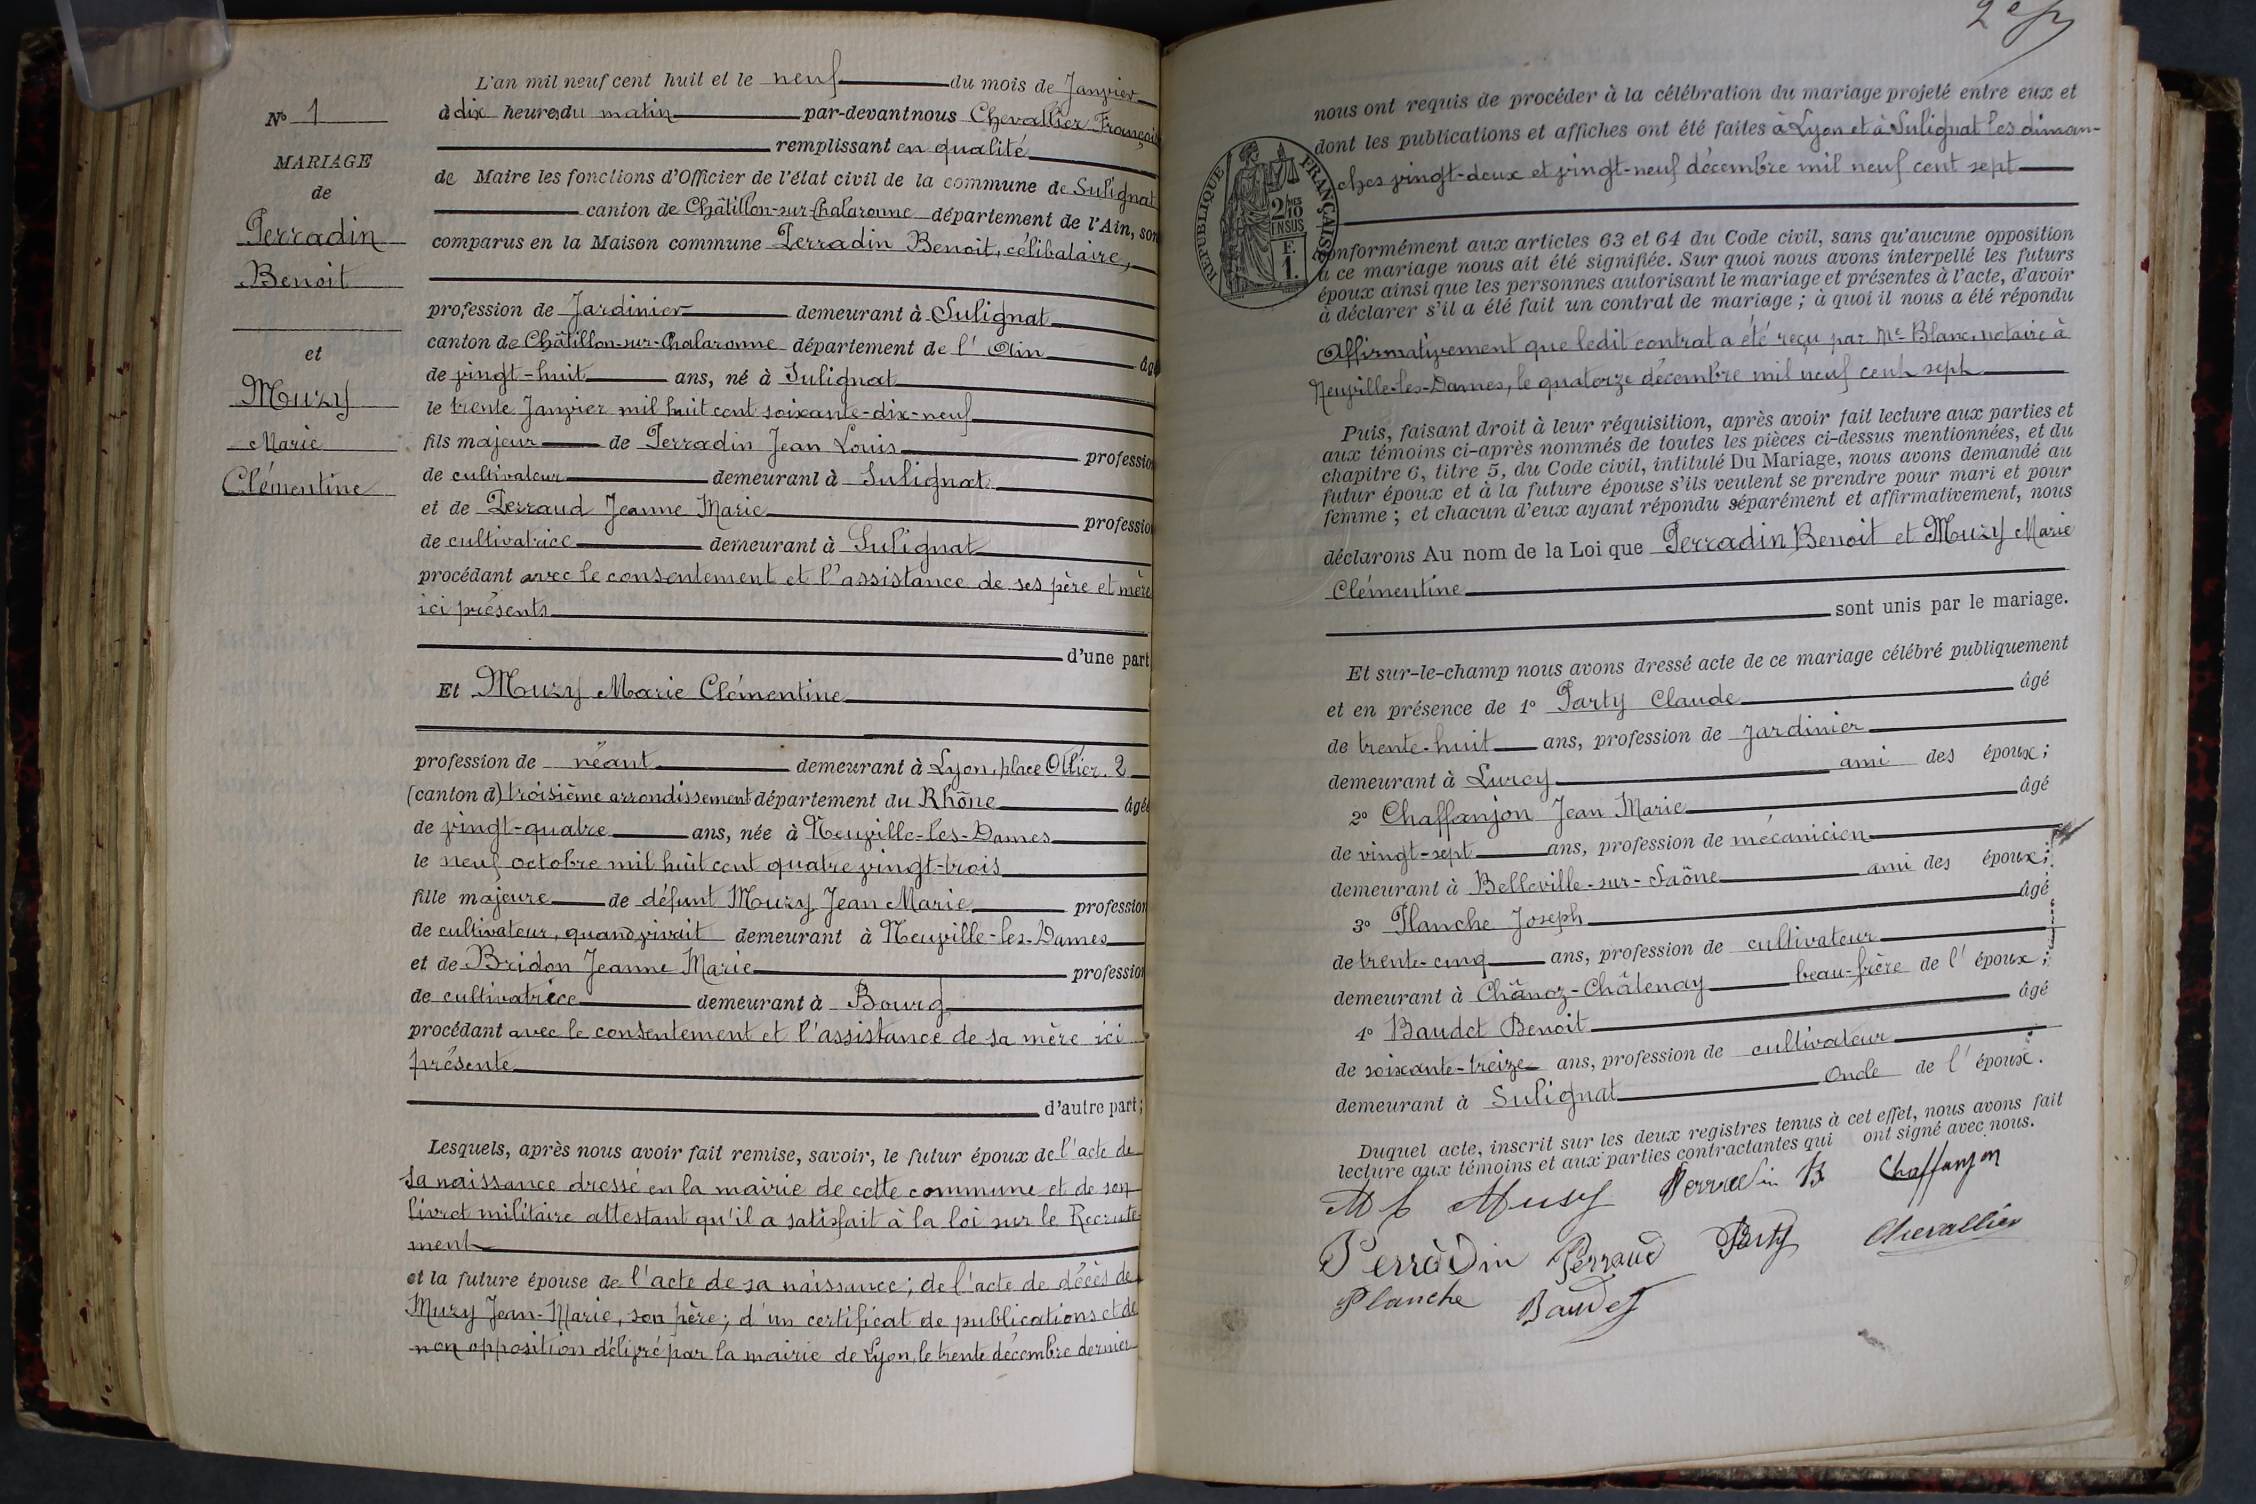 L'an mil neuf cent huit et le neuf du mois de Janvier
à dix heures du matin par-devant nous Chevallier François
remplissant en qualité
de Maire les fonctions d'Officier de l'état civil de la commune de Sulignat
canton de Châtillon-sur-Chalaronne département de l'Ain, son
comparus en la Maison commune Perradin Benoit, célibataire,
profession de Jardinier demeurant à Sulignat
canton de Châtillon-sur-Chalaronne département de l'Ain âgé
de vingt-huit ans, né à Sulignat
le trente Janvier mil huit cent soixante-dix-neuf
fils majeur de Perradin Jean Louis profession
de cultivateur demeurant à Sulignat
et de Perraud Jeanne Marie profession
de cultivatrice demeurant à Sulignat
procédant avec le consentement et l'assistance de ses père et mère
ici présents
d'une part
Et Muzy Marie Clémentine
profession de néant demeurant à Lyon, place Ollier, 2
(canton d) troisième arrondissement département du Rhône âgée
de vingt-quatre ans, née à Neuville-les-Dames
le neuf octobre mil huit cent quatre vingt-trois
fille majeure de défunt Muzy Jean Marie profession
de cultivateur, quand vivait demeurant à Neuville-les-Dames
et de Bridon Jeanne Marie profession
de cultivatrice demeurant à Bourg
procédant avec le consentement et l'assistance de sa mère ici
présente
d'autre part;
Lesquels, après nous avoir fait remise, savoir, le futur époux de l'acte de
sa naissance dressé en la mairie de cette commune et de son
livret militaire attestant qu'il a satisfait à la loi sur le Recrute-
ment
et la future épouse de l'acte de sa naissance; de l'acte de décès de
Muzy Jean-Marie, son père; d'un certificat de publications et de
non opposition délivré par la mairie de Lyon, le trente décembre dernier
No 1
MARIAGE
de
Perradin
Benoit
et
Muzy
Marie
Clémentine
2e
nous ont requis de procéder à la célébration du mariage projeté entre eux et
dont les publications et affiches ont été faites à Lyon et à Sulignat les diman-
ches vingt-deux et vingt-neuf décembre mil neuf cent sept
RÉPUBLIQUE FRANÇAISE
2/10
EN SUS
F.
1.
conformément aux articles 63 et 64 du Code civil, sans qu'aucune opposition
à ce mariage nous ait été signifiée. Sur quoi nous avons interpellé les futurs
époux ainsi que les personnes autorisant le mariage et présentes à l'acte, d'avoir
à déclarer s'il a été fait un contrat de mariage; à quoi il nous a été répondu
Affirmativement que ledit contrat a été reçu par Me Blanc, notaire à
Neuville-les-Dames, le quatorze décembre mil neuf cent sept
Puis, faisant droit à leur réquisition, après avoir fait lecture aux parties et
aux témoins ci-après nommés de toutes les pièces ci-dessus mentionnées, et du
chapitre 6, titre 5, du Code civil, intitulé Du Mariage, nous avons demandé au
futur époux et à la future épouse s'ils veulent se prendre pour mari et pour
femme; et chacun d'eux ayant répondu séparément et affirmativement, nous
déclarons Au nom de la Loi que Perradin Benoit et Muzy Marie
Clémentine
sont unis par le mariage.
Et sur-le-champ nous avons dressé acte de ce mariage célébré publiquement
et en présence de 1° Party Claude âgé
de trente-huit ans, profession de jardinier
demeurant à Lurcy ami des époux;
2° Chaffanjon Jean Marie âgé
de vingt-sept ans, profession de mécanicien
demeurant à Belleville-sur-Saône ami des époux;
3° Planche Joseph âgé
de trente-cinq ans, profession de cultivateur
demeurant à Chânoz-Châtenay beau-frère de l'époux;
4° Baudet Benoit âgé
de soixante-treize ans, profession de cultivateur
demeurant à Sulignat Oncle de l'époux.
Duquel acte, inscrit sur les deux registres tenus à cet effet, nous avons fait
lecture aux témoins et aux parties contractantes qui ont signé avec nous.
M C Musy Perradin B Chaffanjon
Perradin Perraud Party Chevallier
Planche Baudet